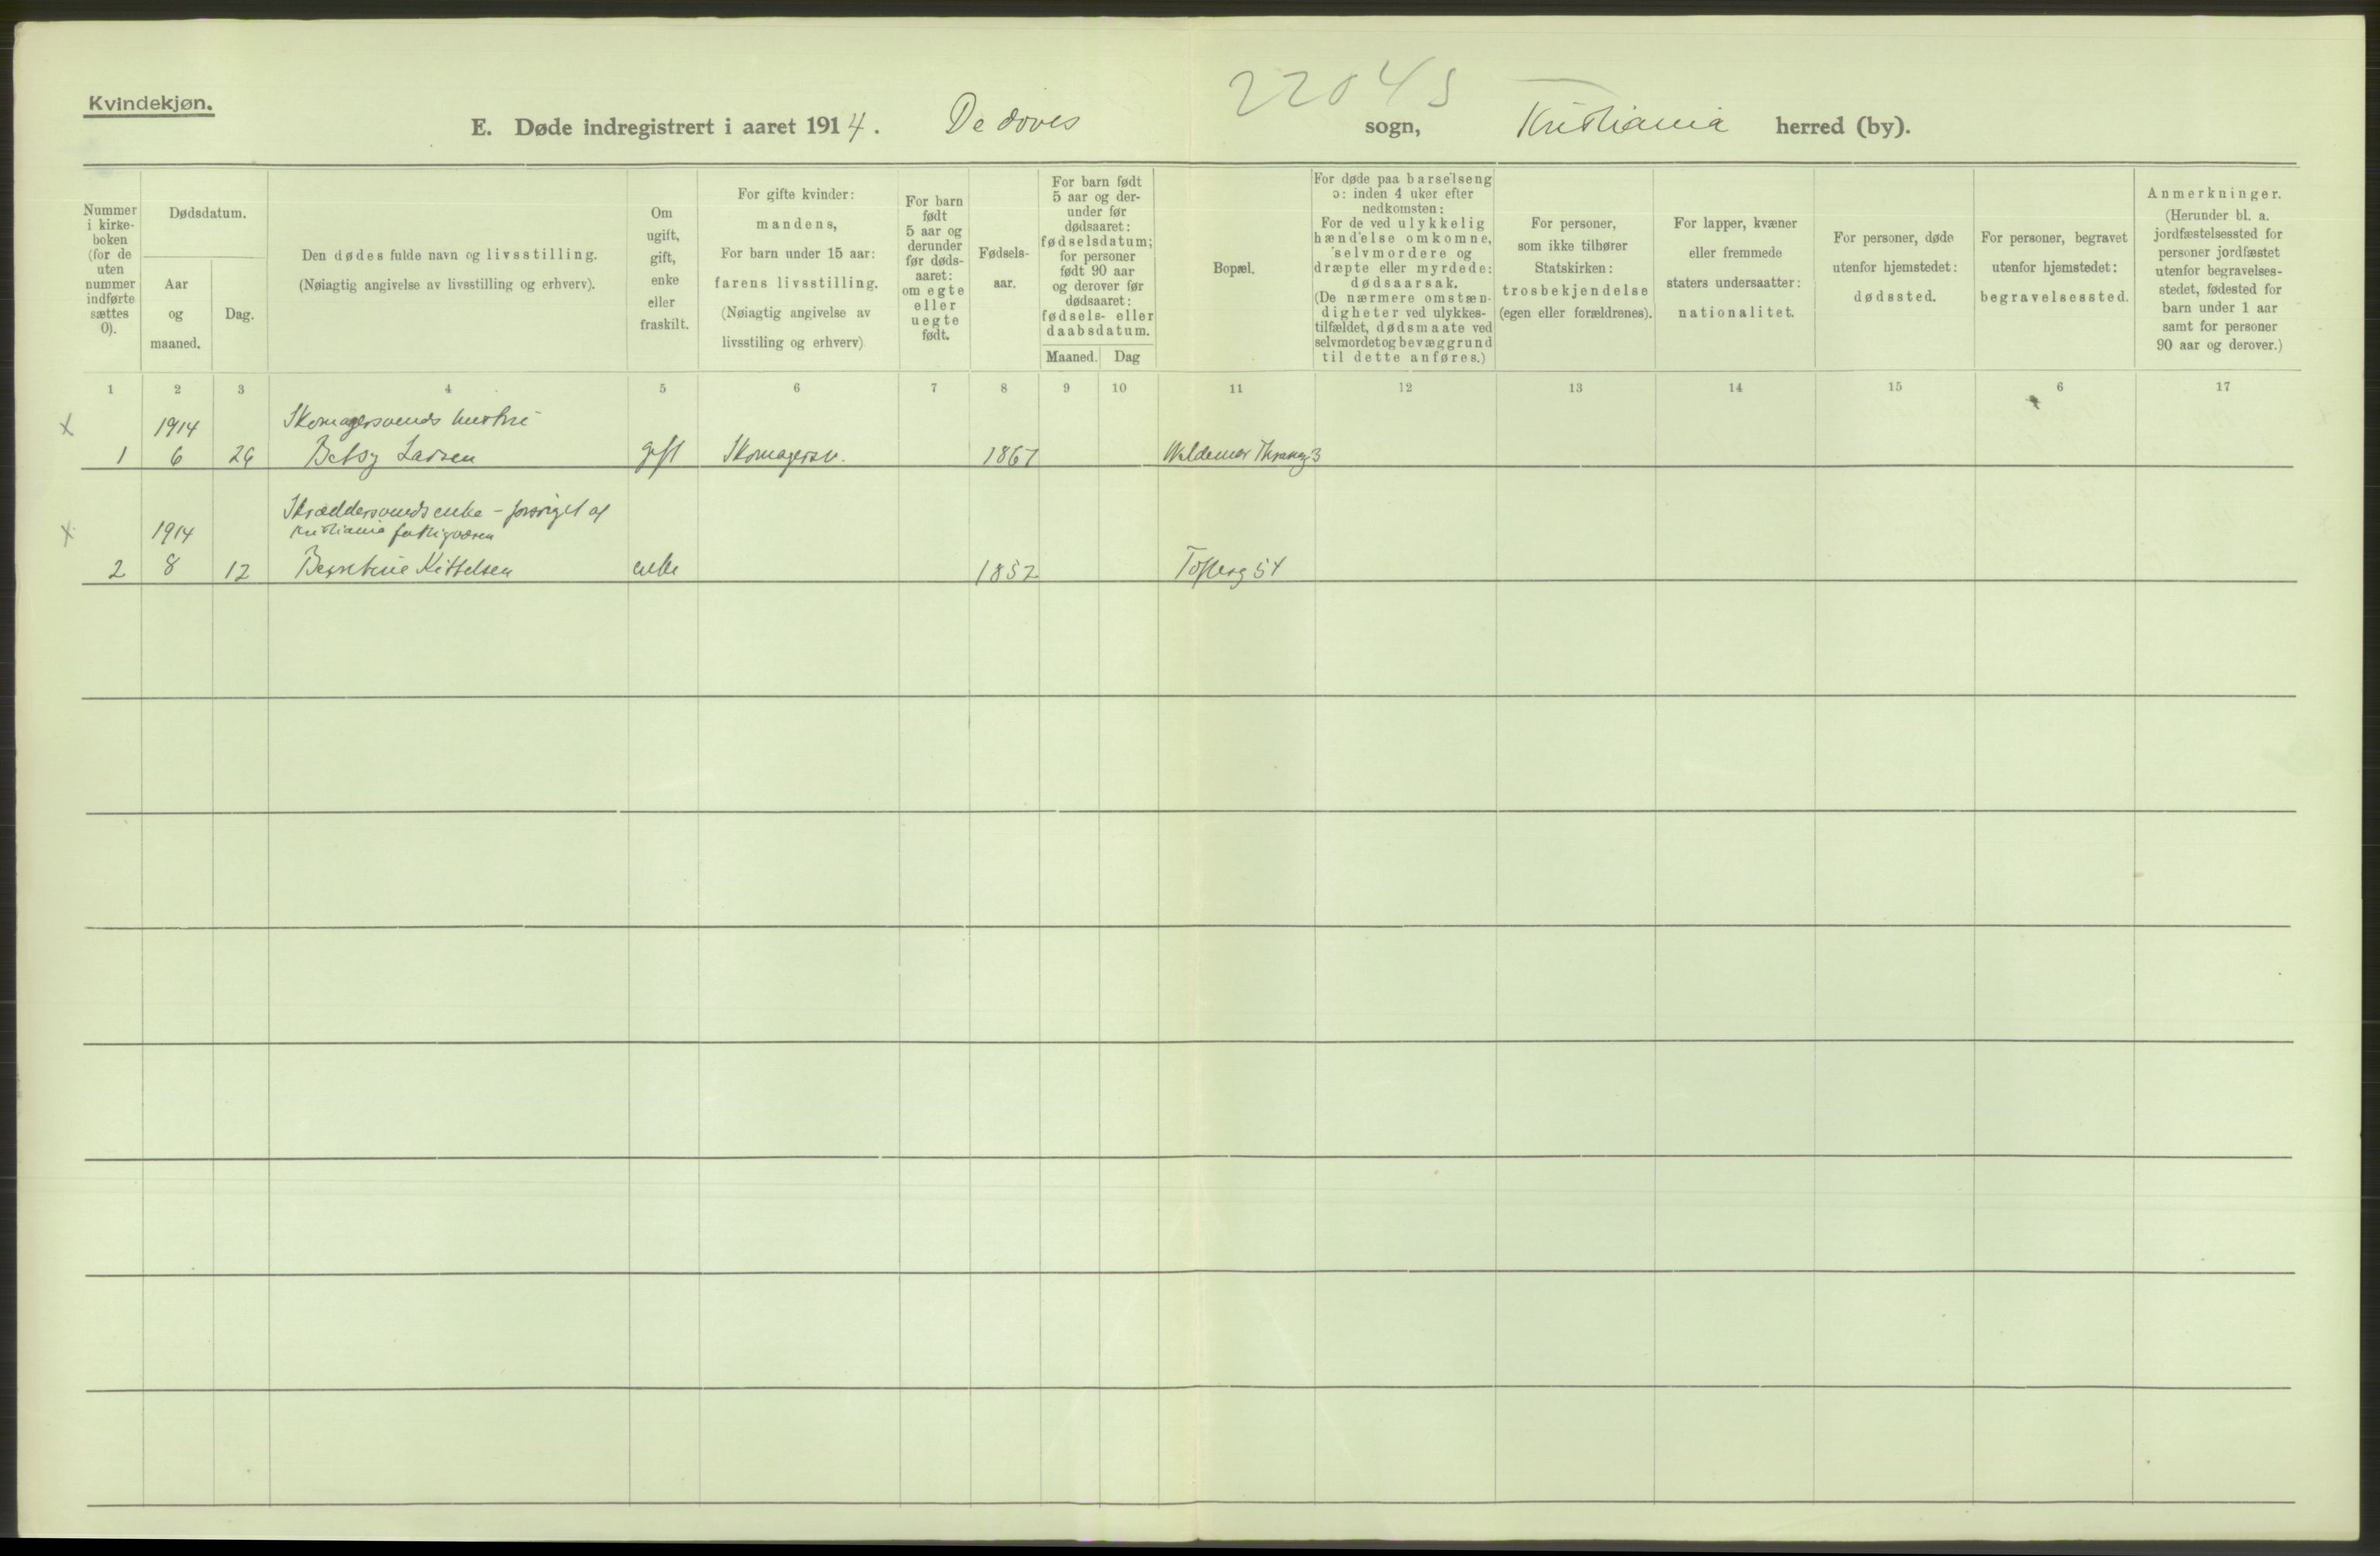 Kvindekjøn.
22045
E. Døde indregistrert i aaret 1914. De døves sogn, Kristiania herred (by).
Nummer i kirke- boken (for de uten nummer indførte sættes 0).
Dødsdatum.
Aar og maaned.
Dag.
Den dødes fulde navn og livsstilling.
(Nøiagtig angivelse av livsstilling og erhverv).
Om ugift, gift, enke eller fraskilt.
For gifte kvinder:
mandens,
For barn under 15 aar:
farens livsstilling.
(Nøiagtig angivelse av
livsstiling og erhverv)
For barn født 5 aar og derunder før døds- aaret: om egte eller uegte født.
Fødsels-
aar.
For barn født
5 aar og der-
under før
dødsaaret:
fødselsdatum;
for personer
født 90 aar
og derover før
dødsaaret:
fødsels- eller
daabsdatum.
Maaned. Dag
Bopæl.
For døde paa barselseng
ɔ: inden 4 uker efter
nedkomsten:
For de ved ulykkelig
hændelse omkomne,
selvmordere og
dræpte eller myrdede:
dødsaarsak.
(De nærmere omstæn-
digheter ved ulykkes-
tilfældet, dødsmaate ved
selvmordet og bevæggrund
til dette anføres.)
For personer,
som ikke tilhører
Statskirken:
trosbekjendelse
(egen eller forældrenes).
For lapper, kvæner
eller fremmede
staters undersaatter:
nationalitet.
For personer, døde
utenfor hjemstedet:
dødssted.
For personer, begravet
utenfor hjemstedet:
begravelsessted.
Anmerkninger.
(Herunder bl. a.
jordfæstelsessted for
personer jordfæstet
utenfor begravelses-
stedet, fødested for
barn under 1 aar
samt for personer
90 aar og derover.)
1 2 3 4 5 6 7 8 9 10 11 12 13 14 15 6 17
x 1914 Skomagersvends hustru
1 6 26 Betsy Larsen gift Skomagersv. 1867 Waldemar Thranesg 3
x 1914 Skræddersvends enke – forsørget af
Kristiania fattigvæsen
2 8 12 Berntine Kittelsen enke 1852 Tofteg 54